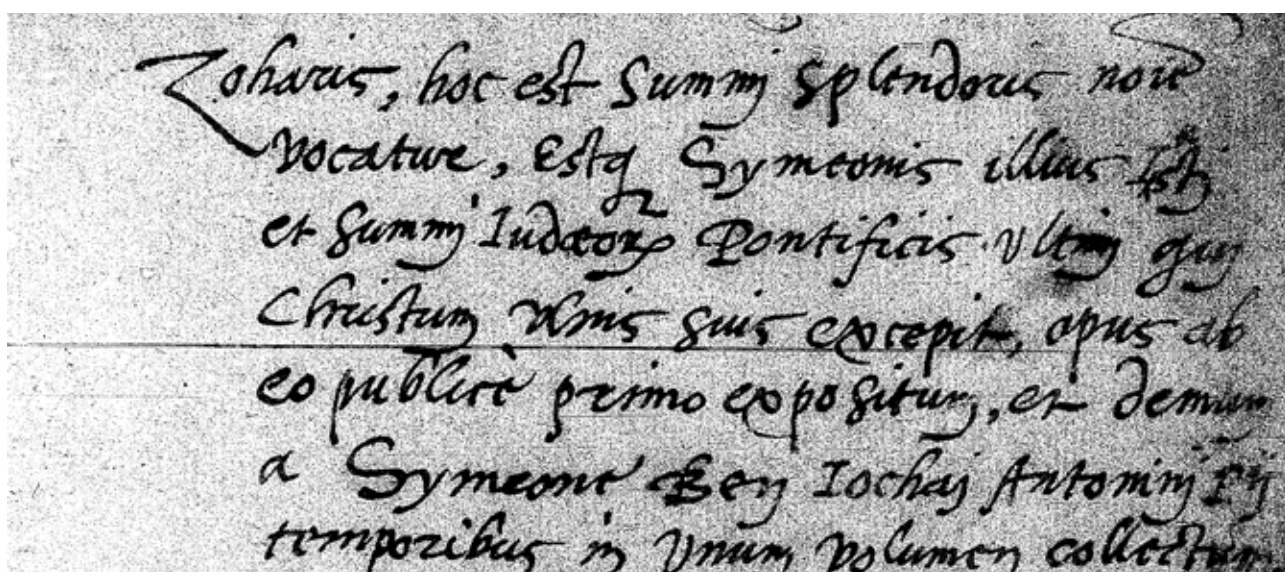 Zoharis, hoc est Summj Splendoris noie
vocatur, Estq Symeonis illius Istj
et Summj Iudæoꝝ Pontificis Vltimj quj
Christum Vlnis suis excepit, opus ab
eo publicè primo expositum, et demum
a Symeone Ben Iochaj Antoninj Pij
temporibus in Vnum Volumen collectum